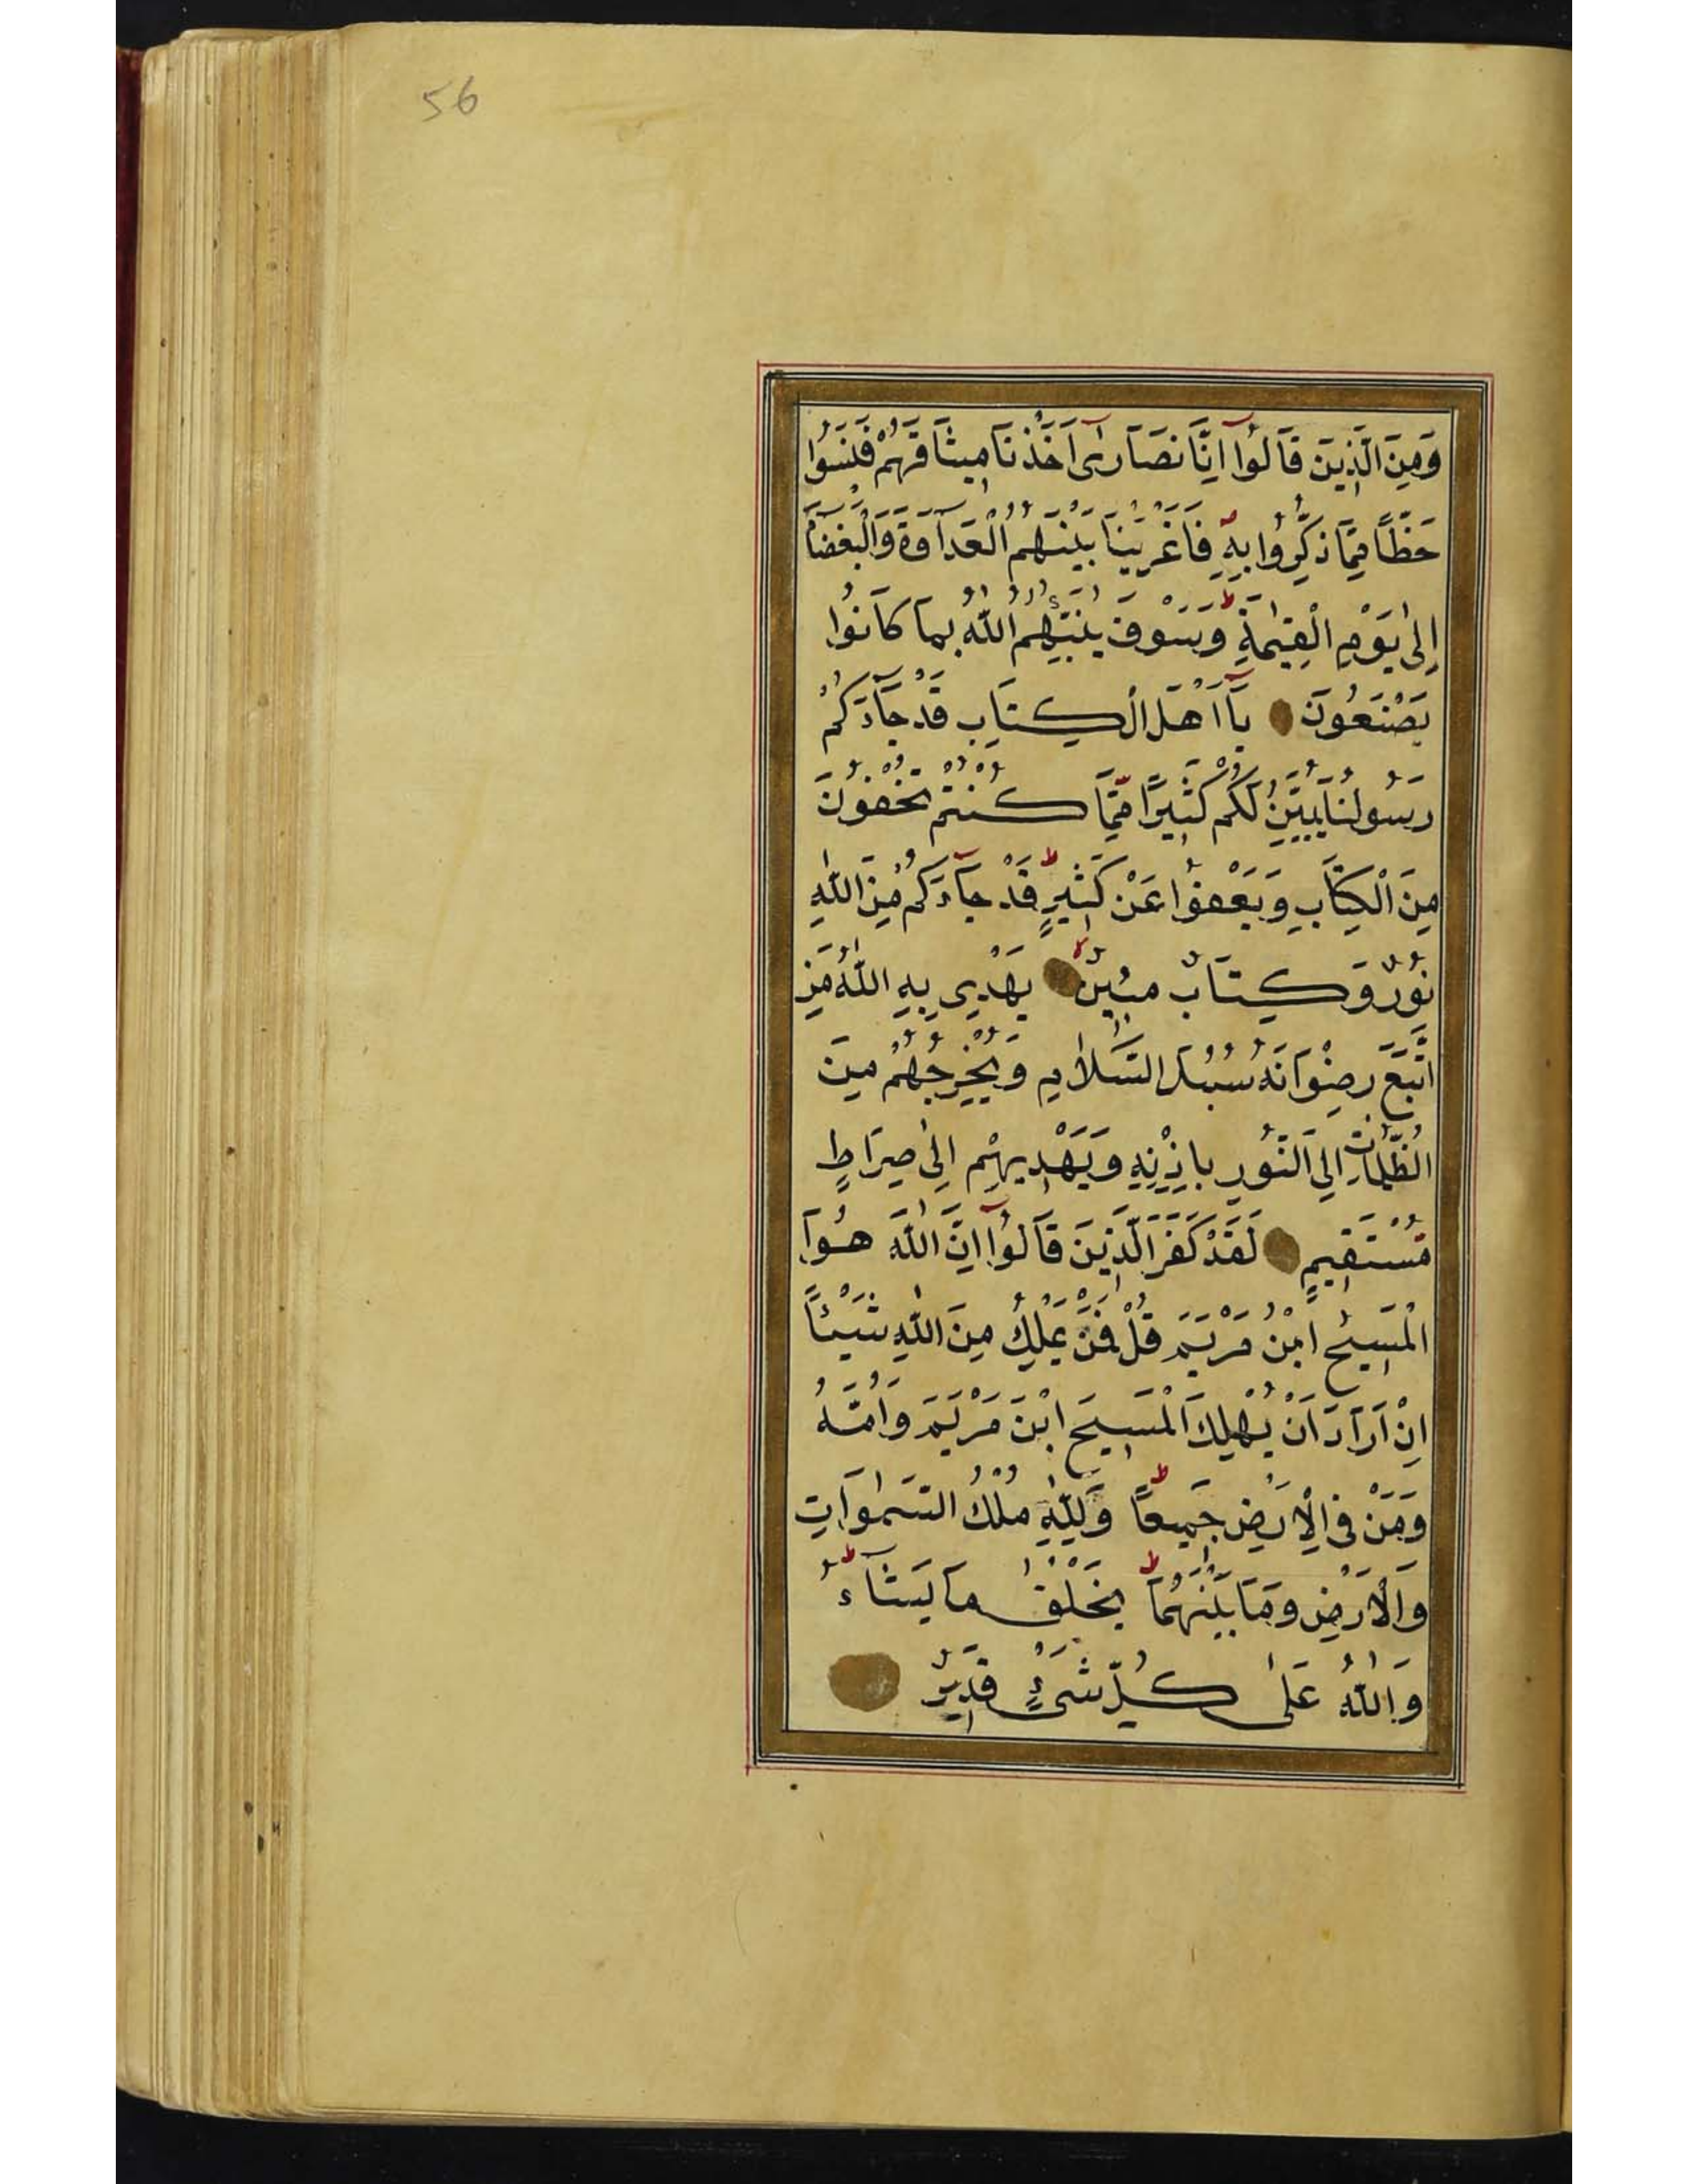 56
وَمِنَ الَّذِينَ قَالُوا اِنَّا نَصَارٰى اَخَذْنَا مِيثَاقَهُمْ فَنَسُوا
حَظًّا مِمَّا ذُكِّرُوا بِهِ فَاَغْرَيْنَا بَيْنَهُمُ الْعَدَاوَةَ وَالْبَغْضَاءَ
اِلٰى يَوْمِ الْقِيٰمَةِ ط وَسَوْفَ يُنَبِّئُهُمُ اللّٰهُ بِمَا كَانُوا
يَصْنَعُونَ يَآ اَهْلَ الْكِتَابِ قَدْ جَآءَكُمْ
رَسُولُنَا يُبَيِّنُ لَكُمْ كَثِيرًا مِمَّا كُنْتُمْ تُخْفُونَ
مِنَ الْكِتَابِ وَيَعْفُوا عَنْ كَثِيرٍ ط قَدْ جَآءَكُمْ مِنَ اللّٰهِ
نُورٌ وَكِتَابٌ مُبِينٌ لا يَهْدِي بِهِ اللّٰهُ مَنِ
اتَّبَعَ رِضْوَانَهُ سُبُلَ السَّلَامِ وَيُخْرِجُهُمْ مِنَ
الظُّلُمَاتِ اِلَى النُّورِ بِاِذْنِهِ وَيَهْدِيهِمْ اِلٰى صِرَاطٍ
مُسْتَقِيمٍ لَقَدْ كَفَرَ الَّذِينَ قَالُوآ اِنَّ اللّٰهَ هُوَ
الْمَسِيحُ ابْنُ مَرْيَمَ قُلْ فَمَنْ يَمْلِكُ مِنَ اللّٰهِ شَيْئًا
اِنْ اَرَادَ اَنْ يُهْلِكَ الْمَسِيحَ ابْنَ مَرْيَمَ وَاُمَّهُ
وَمَنْ فِي الْاَرْضِ جَمِيعًا ط وَلِلّٰهِ مُلْكُ السَّمٰوَاتِ
وَالْاَرْضِ وَمَا بَيْنَهُمَا ط يَخْلُقُ مَا يَشَآءُ ط
وَاللّٰهُ عَلٰى كُلِّ شَيْءٍ قَدِيرٌ